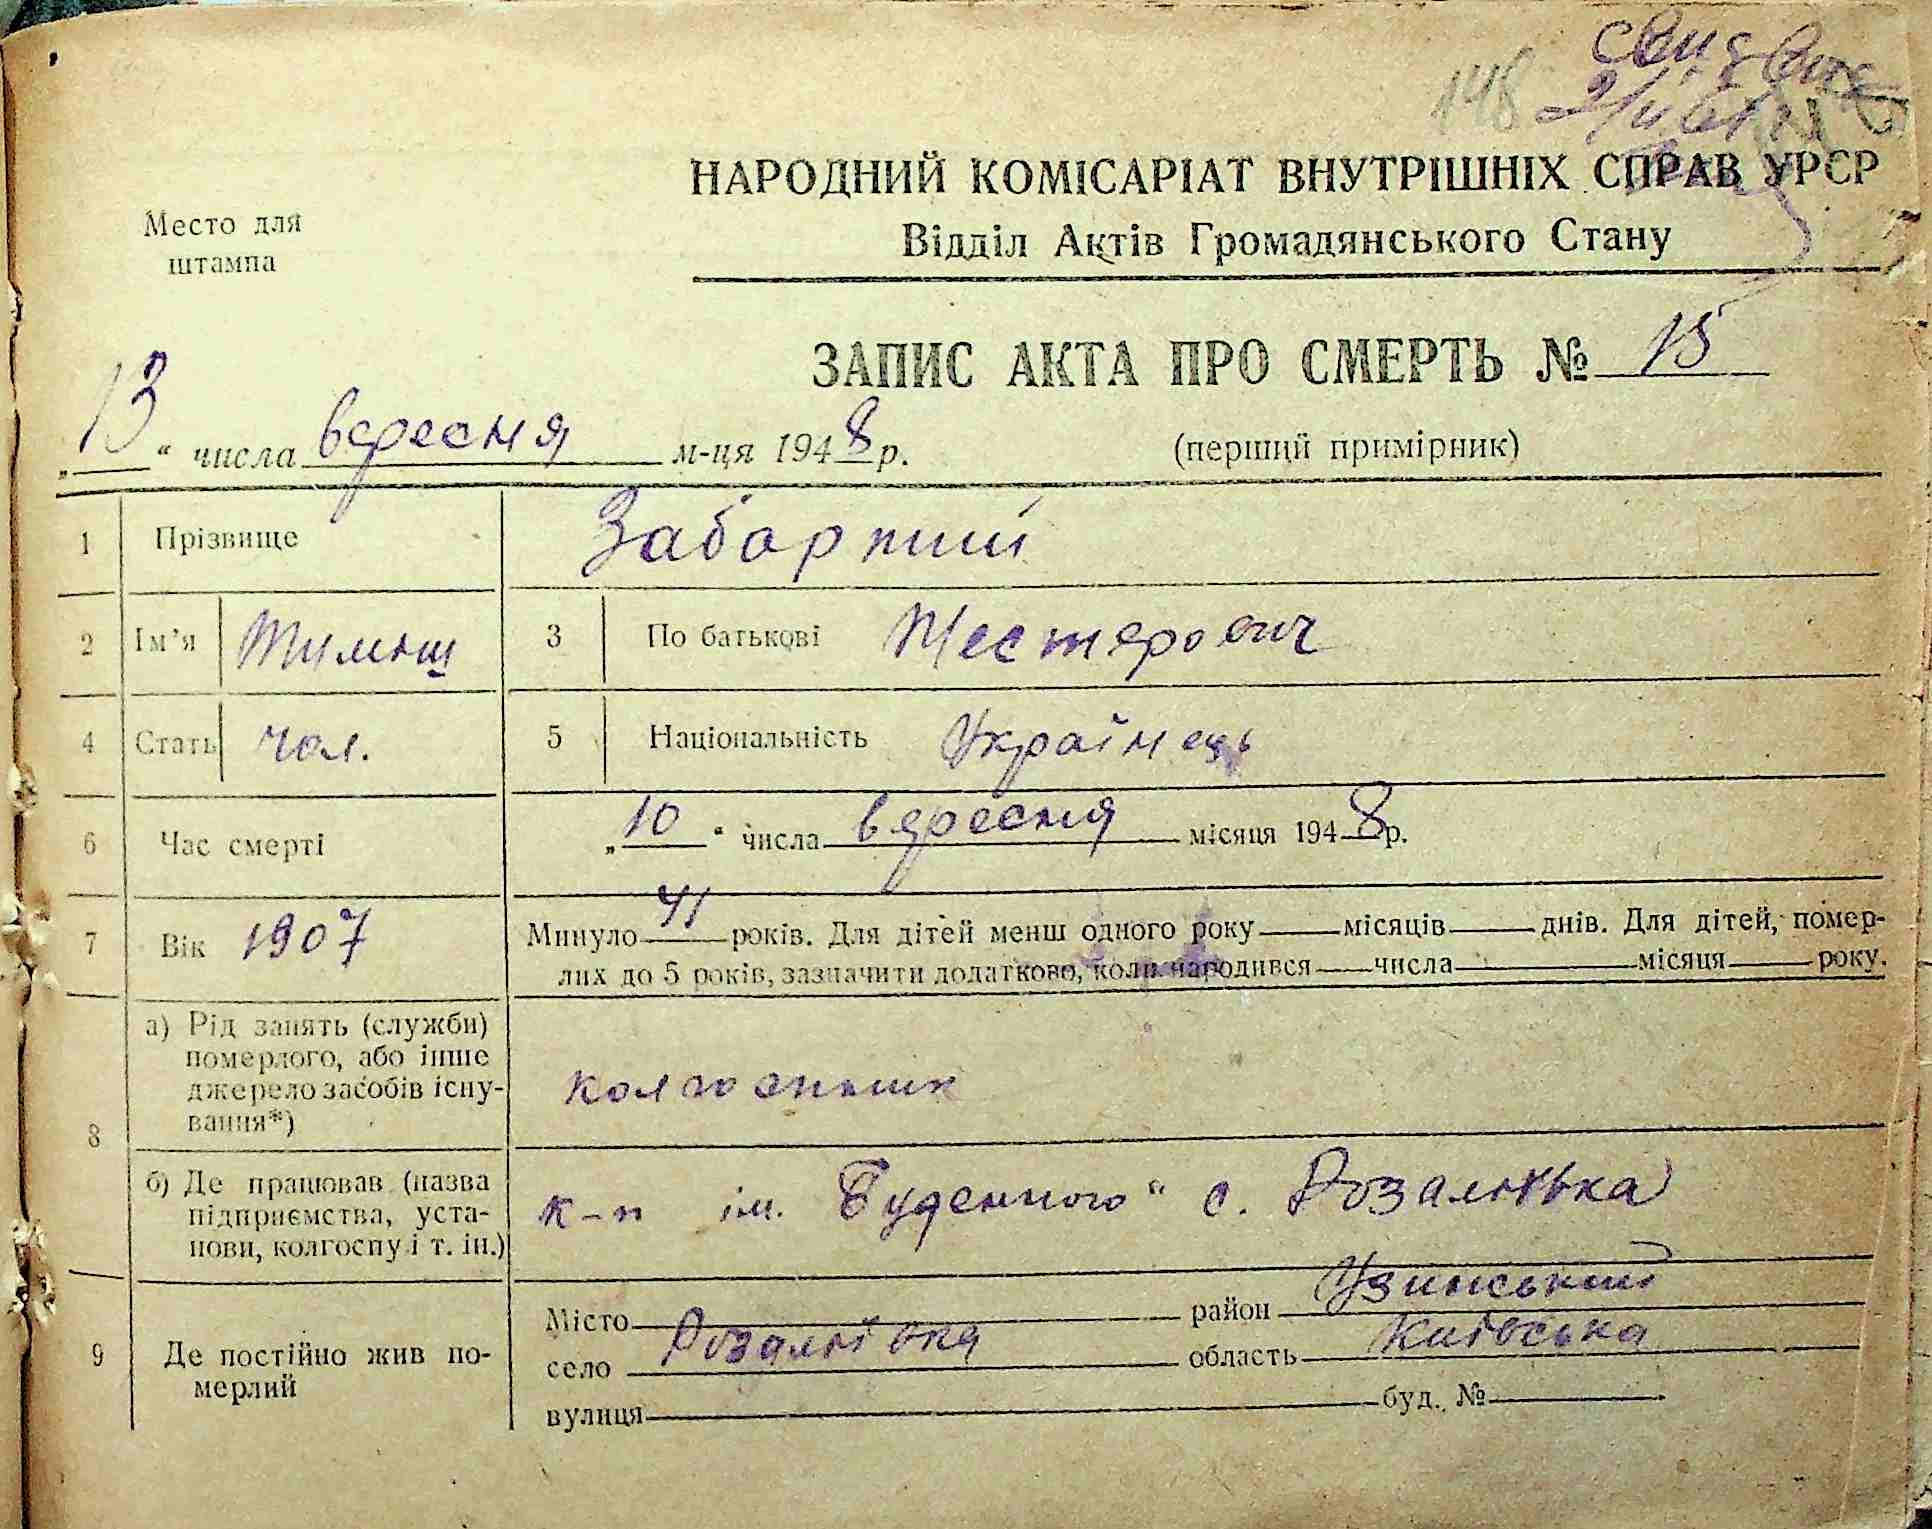 148
НАРОДНИЙ КОМІСАРІАТ ВНУТРІШНІХ СПРАВ УРСР
Відділ Актів Громадянського Стану
Место для
штампа
ЗАПИС АКТА ПРО СМЕРТЬ № 15
„13“ числа вересня м-ця 1948 р.
(перший примірник)
1 Прізвище Забарний
2 Ім'я Тиміш 3 По батькові Нестерович
4 Стать чол. 5 Національність Українець
6 Час смерті „10“ числа вересня місяця 1948 р.
7 Вік 1907 Минуло 41 років. Для дітей менш одного року місяців днів. Для дітей, помер-
лих до 5 років, зазначити додатково, коли народився числа місяця року.
8 а) Рід занять (служби)
померлого, або інше
джерело засобів існу-
вання*)
колгоспник
б) Де працював (назва
підприємства, уста-
нови, колгоспу і т. ін.)
к-п ім. Буденного" с. Розалювка
9 Де постійно жив по-
мерлий
Місто район Узинський
село Розаліївка область Київська
вулиця буд. №